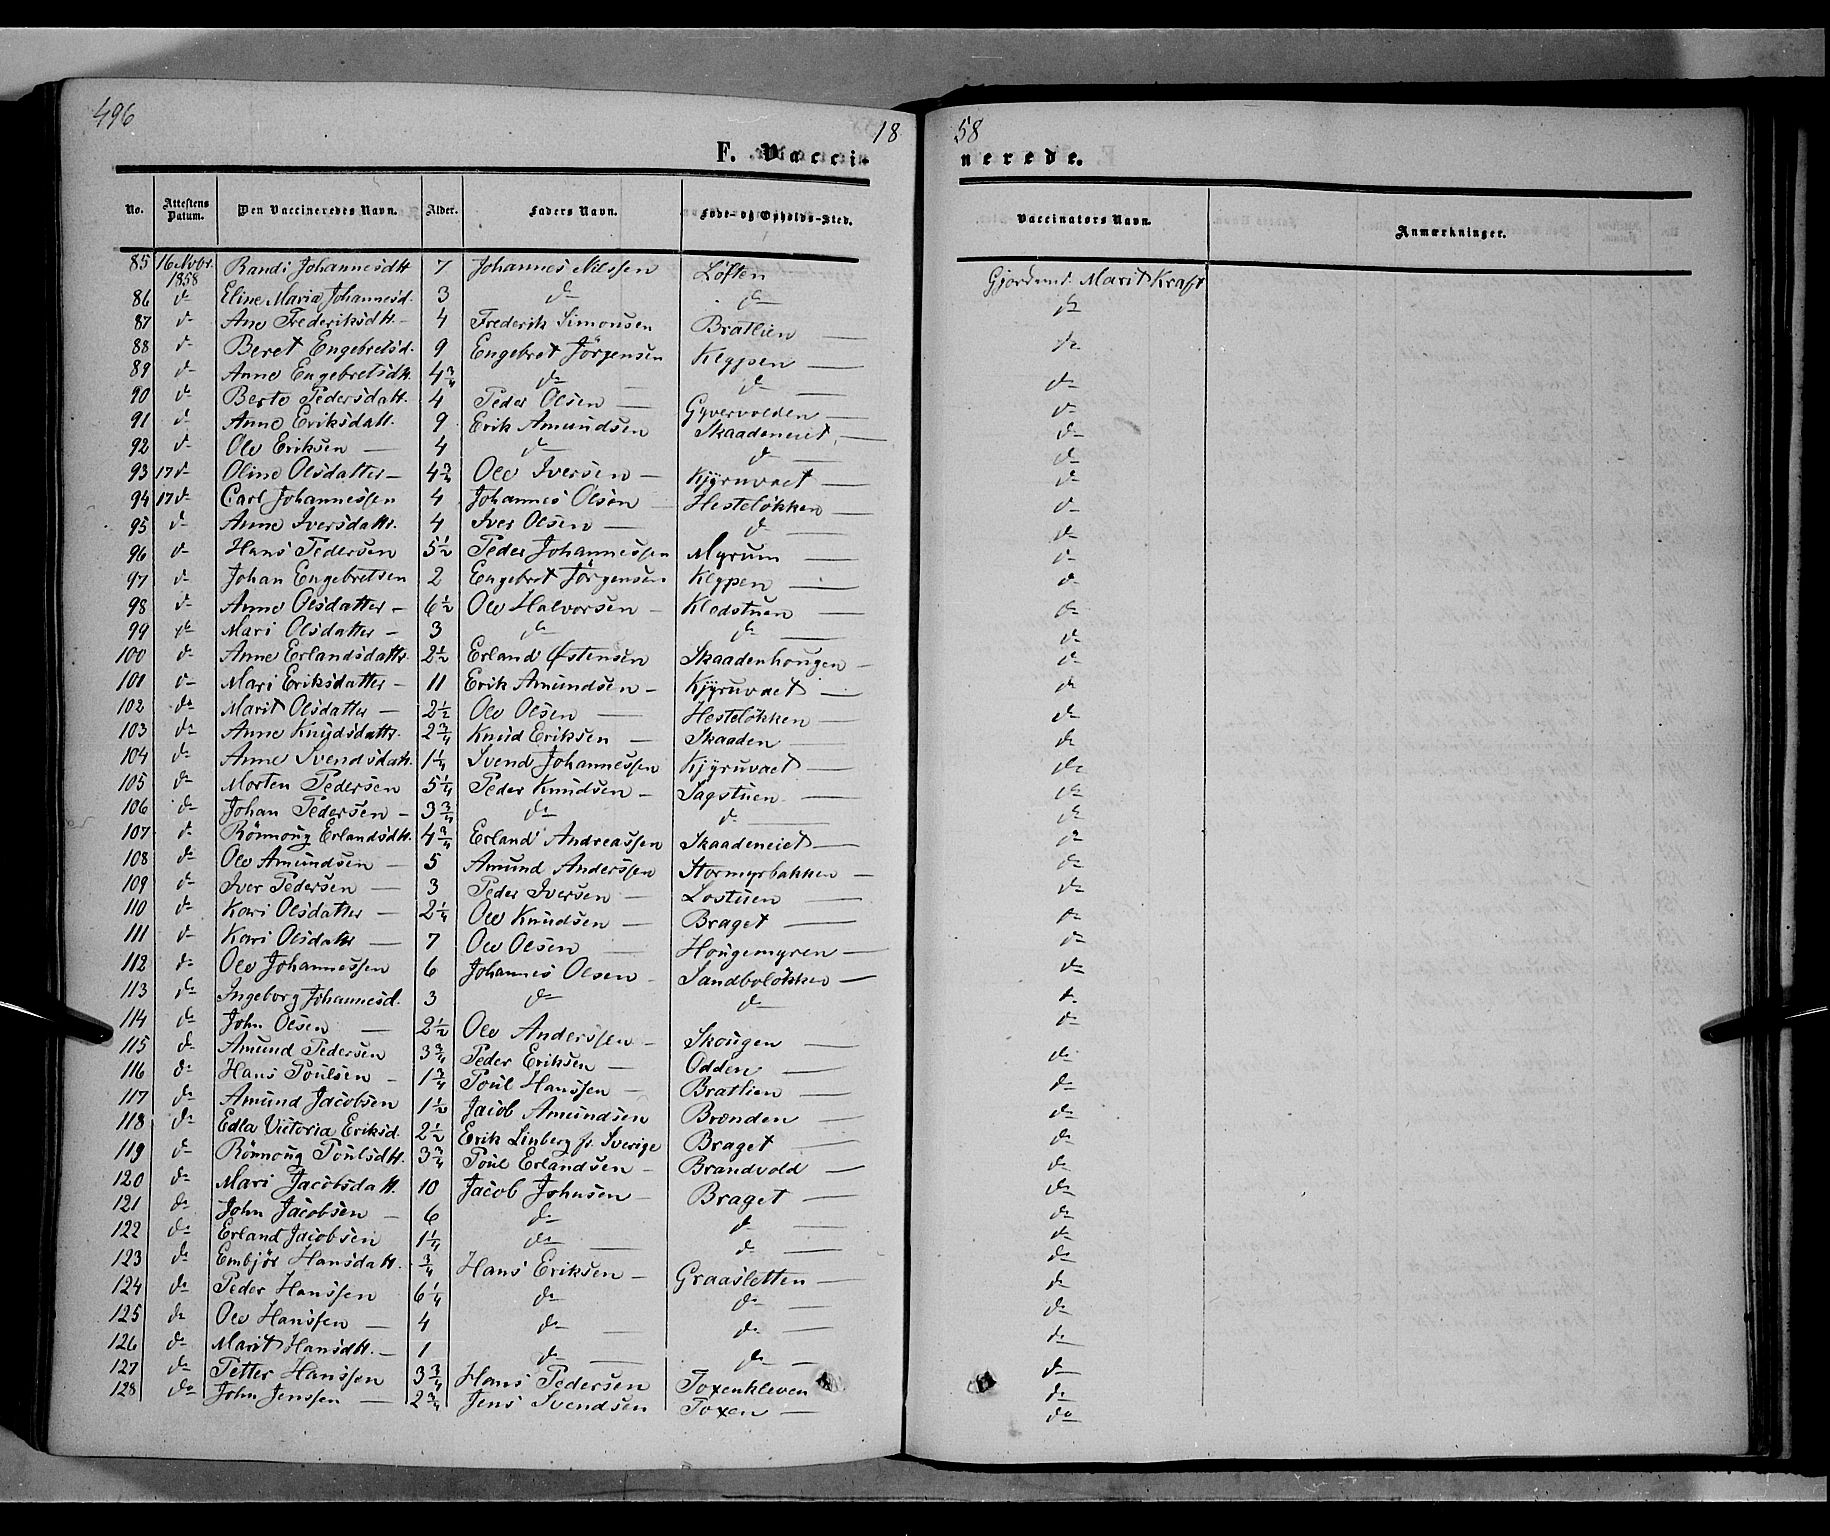 496
18 58
F. Vacci- nerede.
No. Attestens Datum. Den Vaccineredes Navn. Alder. Faders Navn. Føde- og Opholds-Sted. Vaccinators Navn. Anmærkninger.
85 16 Novbr. 1858 Randi Johannesdtt 7 Johannes Nilssen Löften Gjordemd. Marit Kraft
86 do Eline Maria Johannesd. 3 do do do
87 do Ane Frederiksdtt. 4 Frederik Simonsen Bratlien do
88 do Beret Engebretsd. 9 Engebret Jörgensen Klypen
89 do Anne Engebretsdtt. 4 3/4 do do do
90 do Berte Pedersdatt. 4 Peder Olsen Gyvervolden do
91 do Anne Eriksdatt. 9 Erik Amundsen Skaadeneiet do
92 do Ole Eriksen 4 do do do
93 17 do Oline Olsdatter 4 3/4 Ole Iversen Kjÿruvaet do
94 17 do Carl Johannessen 4 Johannes Olsen Hestelökken do
95 do Anne Iversdattr. 4 Iver Olsen do do
96 do Hans Pedersen 5 1/2 Peder Johannessen Myrum do
97 do Johan Engebretsen 2 Engebret Jörgensen Klypen do
98 do Anne Olsdatter 6 1/2 Ole Halvorsen Kledstuen do
99 do Mari Olsdatter 3 do do do
100 do Anne Erlandsdattr. 2 1/2 Erland Østensen Skaadenhougen do
101 do Mari Eriksdatter 11 Erik Amundsen Kjÿruvaet do
102 do Marit Olsdatter 2 1/2 Ole Olsen Hestelökken do
103 do Anne Knudsdattr. 2 3/4 Knud Eriksen Skaaden do
104 do Anne Svendsdatt. 1 1/4 Svend Johannessen Kjÿruvaet do
105 do Morten Pedersen 5 1/4 Peder Knudsen Sagstuen do
106 do Johan Pedersen 3 3/4 do do do
107 do Rönnoug Erlandsdtt. 4 3/4 Erland Andreassen Skaadeneiet do
108 do Ole Amundsen 5 Amund Anderssen Stormyrbakken do
109 do Iver Pedersen 3 Peder Iversen Lostuen do
110 do Kari Olsdatter 2 1/4 Ole Knudsen Braget do
111 do Kari Olsdattr 7 Ole Olsen Hougemyren do
112 do Ole Johannessen 6 Johannes Olsen Sandbolökken do
113 do Ingeborg Johannesd. 3 do do do
114 do John Olsen 2 1/2 Ole Anderssen Skougen do
115 do Amund Pedersen 3 3/4 Peder Eriksen Odden do
116 do Hans Poulsen 1 3/4 Poul Hanssen Bratlien do
117 do Amund Jacobsen 1 1/2 Jacob Amundsen Brænden do
118 do Edla Victoria Eriksd. 2 1/2 Erik Linberg fr. Sverige Braget do
119 do Rönnoug Poulsdtt. 3 3/4 Poul Erlandsen Brandvold do
120 do Mari Jacobsdatt. 10 Jacob Johnsen Braget do
121 do John Jacobsen 6 do do do
122 do Erland Jacobsen 1 1/4 do do do
123 do Embjör Hansdatt. 3/4 Hans Eriksen Graasletten do
124 do Peder Hanssen 6 1/4 do do do
125 do Ole Hanssen 4 do do do
126 do Marit Hansdtt. 1 do do do
127 do Petter Hanssen 3 3/4 Hans Pedersen Toxenkleven do
128 do John Jenssen 2 3/4 Jens Svendsen Toxen do